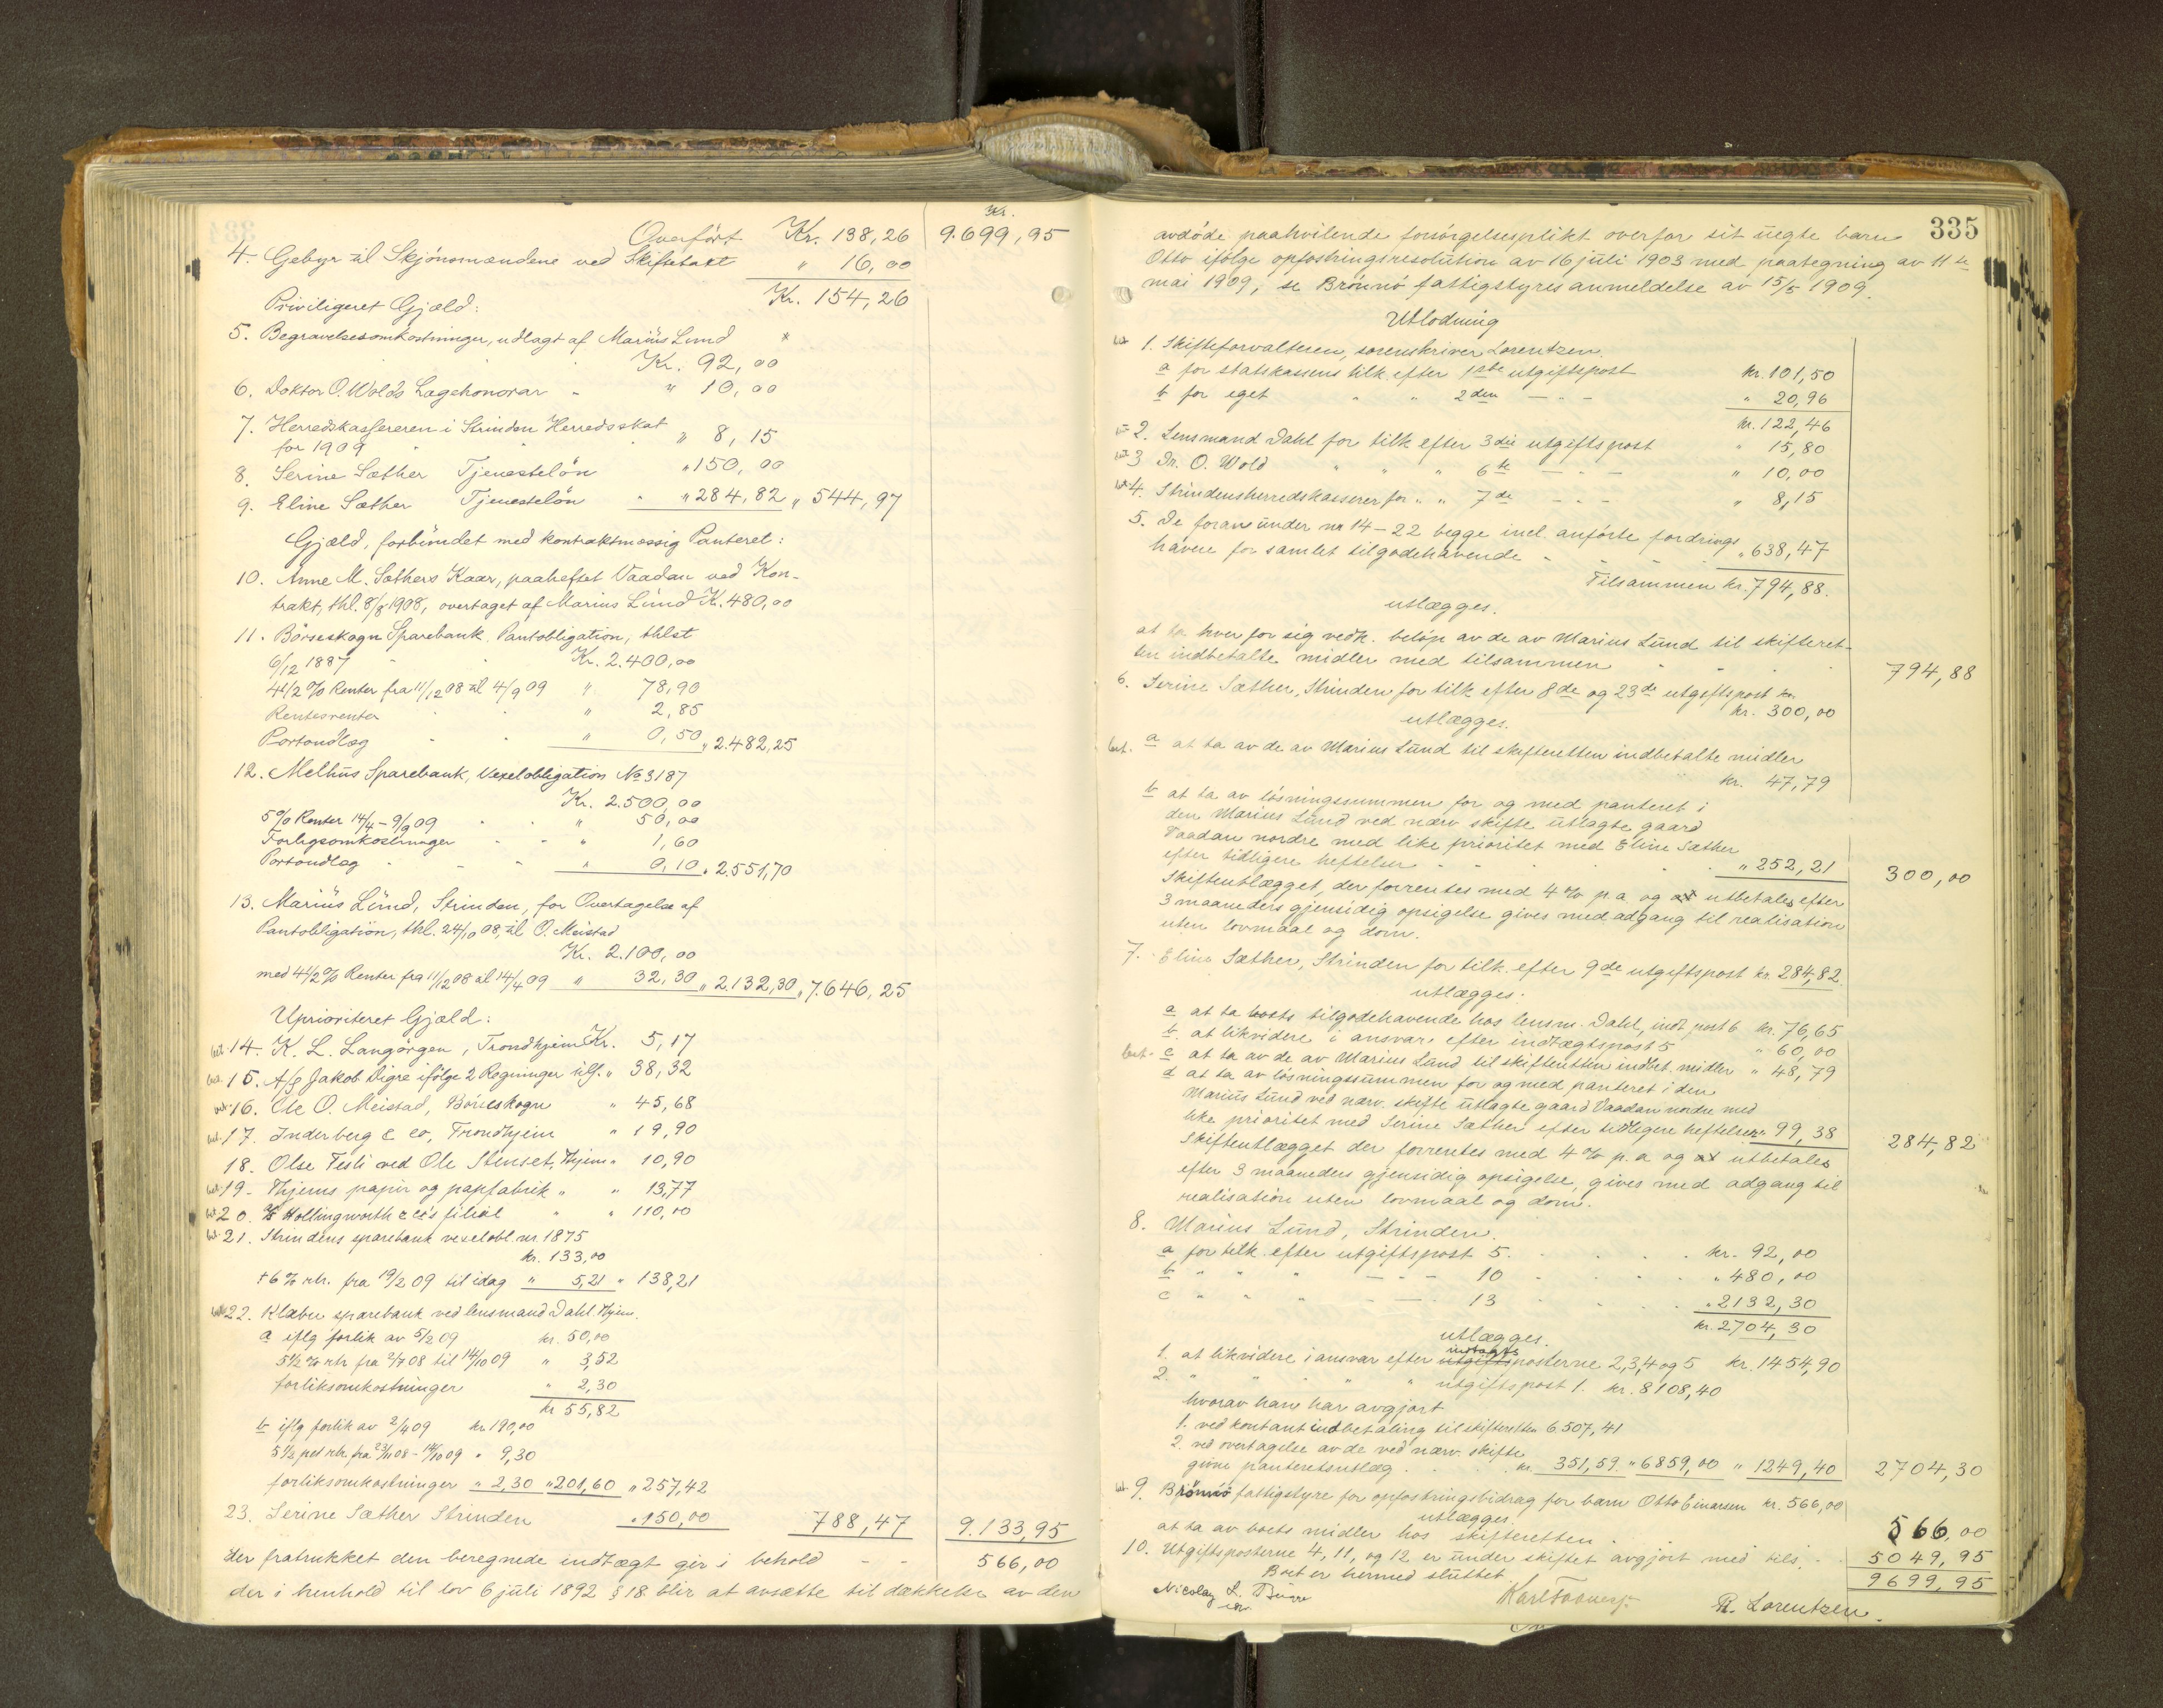 Kr.
Overført Kr. 138,26 9.699,95
4. Gebyr til Skjönsmændene ved Skiftetakt " 16,00
Kr. 154,26
Priviligeret Gjæld:
5. Begravelsesomkostninger, udlagt af Marius Lund
Kr. 92,00
6. Doktor O. Wolds Lægehonorar " 10,00
7. Herredskassereren i Strinden Herredsskat
for 1909 " 8,15
8. Serine Sæther Tjenestelön " 150,00
9. Eline Sæther Tjenestelön " 284,82 " 544,97
Gjæld, forbundet med kontraktmæssig Panteret:
10. Anne M. Sæthers Kaar, paaheftet Vaadan ved Kon-
trakt, thl. 8/8 1908, overtaget af Marius Lund K. 480,00
11. Börseskogn Sparebank. Pantobligation, thlst
6/12 1887 Kr. 2.400,00
4 1/2 % Renter fra 11/12 08 til 4/9 09 " 78,90
Rentesrenter " 2,85
Portoudlæg " 0,50 " 2.482,25
12. Melhus Sparebank, Vexelobligation No 3187
Kr. 2.500,00
5 % Renter 14/4 - 9/9 09 " 50,00
Forligsomkostninger " 1,60
Portoudlæg " 0,10 " 2.551,70
13. Marius Lund, Strinden, for Overtagelse af
Pantobligation, thl. 24/10 08, til O. Meistad
Kr. 2.100,00
med 4 1/2 % Renter fra 11/12 08 til 14/4 09 " 32,30 " 2.132,30 " 7.646,25
Uprioriteret Gjæld:
bet. 14. K. L. Langörgen, Trondhjem Kr. 5,17
bet. 15. A/S Jakob Digre ifölge 2 Regninger " 38,32
bet. 16. Ole O. Meistad, Börseskogn " 45,68
bet. 17. Inderberg & co, Trondhjem " 19,90
18. Olse Festi ved Ole Stenset, Thjem " 10,90
bet. 19. Thjems papir og papfabrik " " 13,77
bet. 20. Hollingworth & co's filial " " 110,00
bet. 21. Strindens sparebank vexelobl. nr. 1875
kr. 133,00
+ 6 % rtr. fra 19/2 09 til idag " 5,21 " 138,21
bet. 22. Klæbu sparebank ved lensmand Dahl Thjem.
a iflg forlik av 5/2 09 kr. 50,00
5 1/2 % rtr fra 2/7 08 til 14/10 09 " 3,52
forliksomkostninger " 2,30
kr 55,82
b iflg forlik av 2/4 09 kr. 190,00
5 1/2 pct rtr. fra 23/11 08 - 14/10 09 " 9,30
forliksomkostninger " 2,30 " 201,60 " 257,42
23. Serine Sæther Strinden " 150,00 788,47 9.133,95
der fratrukket den beregnede indtægt gir i behold - - 566,00
der i henhold til lov 6 juli 1892 § 18 blir at avsætte til dækkelse av den
335
avdöde paahvilende forsörgelsesplikt overfor sit uegte barn
Otto ifölge opfostringsresolution av 16 juli 1903 med paategning av 11te
mai 1909, se Brönnö fattigstyres anmeldelse av 15/5 1909.
Utlodning
bet 1. Skifteforvalteren, sorenskriver Lorentzen.
a for statskassens tilk. efter 1ste utgiftspost kr. 101,50
b for eget " " 2den - " - " 20,96
kr. 122,46
bet 2. Lensmand Dahl for tilk efter 3die utgiftspost " 15,80
bet 3 Dr. O. Wold " " " 6te - " - " 10,00
bet 4. Strindensherredskasserer for " " 7de - " - " 8,15
5. De foran under nr 14-22 begge incl. anförte fordrings
havere for samlet tilgodehavende " 638,47
Tilsammen kr. 794,88.
utlægges.
at ta hver for sig vedk. belöp av de av Marius Lund til skifteret-
ten indbetalte midler med tilsammen 794,88
6. Serine Sæther, Strinden for tilk efter 8de og 23de utgiftspost kr.
kr. 300,00
utlægges.
bet. a at ta av de av Marius Lund til skifteretten indbetalte midler
kr. 47,79
b at ta av lösningssummen for og med panteret i
den Marius Lund ved nærv. skifte utlagte gaard
Vaadan nordre med like prioritet med Eline Sæther
efter tidligere heftelser " 252,21 300,00
Skifteutlægget, der forrentes med 4 % p.a. og at utbetales efter
3 maaneders gjensidig opsigelse gives med adgang til realisation
uten lovmaal og dom.
7. Eline Sæther, Strinden for tilk. efter 9de utgiftspost kr. 284,82.
utlægges:
a at ta boets tilgodehavende hos lensm. Dahl, indt. post 6 kr. 76,65
b. at likvidere i ansvar efter indtægtspost 5 " 60,00
bet. c at ta av de av Marius Lund til skifteretten indbet. midler " 48,79
d at ta av lösningssummen for og med panteret i den
Marius Lund ved nærv. skifte utlagte gaard Vaadan nordre med
like prioritet med Serine Sæther efter tidligere heftelser " 99,38 284,82
Skifteutlægget der forrentes med 4 % p.a og at utbetales
efter 3 maaneders gjensidig opsigelse, gives med adgang til
realisation uten lovmaal og dom.
8. Marius Lund, Strinden.
a for tilk. efter utgiftspost 5. kr. 92,00
b " " " - " - 10 " 480,00
c " " " - " - 13 " 2132,30
kr. 2704,30
utlægges.
1. at likvidere i ansvar efter utgifts indtægts posterne 2,3,4 og 5 kr. 1454,90
2. " " " " utgiftspost 1. kr. 8108,40
hvorav han har avgjort
1. ved kontant indbetaling til skifteretten 6.507,41
2. ved overtagelse av de ved nærv. skifte
givne panteretsutlæg kr. 351,59 " 6859,00 " 1249,40 2704,30
bet 9. Brönnö fattigstyre for opfostringsbidrag for barn Otto Einarsen kr. 566,00
utlægges.
at ta av boets midler hos skifteretten 566,00
10. Utgiftsposterne 4, 11, og 12 er under skiftet avgjort med tils. 5049,95
Boet er hermed sluttet. 9699,95
Nicolay L. R. Lorentzen.